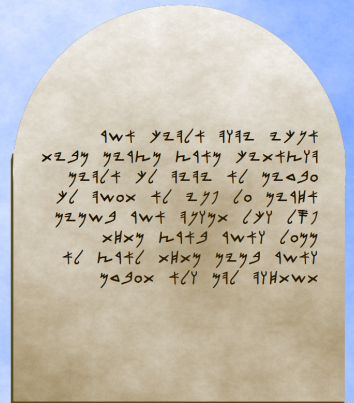 𐤀𐤍𐤊𐤉 𐤉𐤄𐤅𐤄 𐤀𐤋𐤄𐤉𐤊 𐤀𐤔𐤓
𐤄𐤅𐤑𐤀𐤕𐤉𐤊 𐤌𐤀𐤓𐤑 𐤌𐤑𐤓𐤉𐤌 𐤌𐤁𐤉𐤕
𐤏𐤁𐤃𐤉𐤌 𐤋𐤀 𐤉𐤄𐤉𐤄 𐤋𐤊 𐤀𐤋𐤄𐤉𐤌
𐤀𐤇𐤓𐤉𐤌 𐤏𐤋 𐤐𐤍𐤉 𐤋𐤀 𐤕𐤏𐤔𐤄 𐤋𐤊
𐤐𐤎𐤋 𐤅𐤊𐤋 𐤕𐤌𐤅𐤍𐤄 𐤀𐤔𐤓 𐤁𐤔𐤌𐤉𐤌
𐤌𐤌𐤏𐤋 𐤅𐤀𐤔𐤓 𐤁𐤀𐤓𐤑 𐤌𐤕𐤇𐤕
𐤅𐤀𐤔𐤓 𐤁𐤌𐤉𐤌 𐤌𐤕𐤇𐤕 𐤋𐤀𐤓𐤑 𐤋𐤀
𐤕𐤔𐤕𐤇𐤅𐤄 𐤋𐤄𐤌 𐤅𐤋𐤀 𐤕𐤏𐤁𐤃𐤌